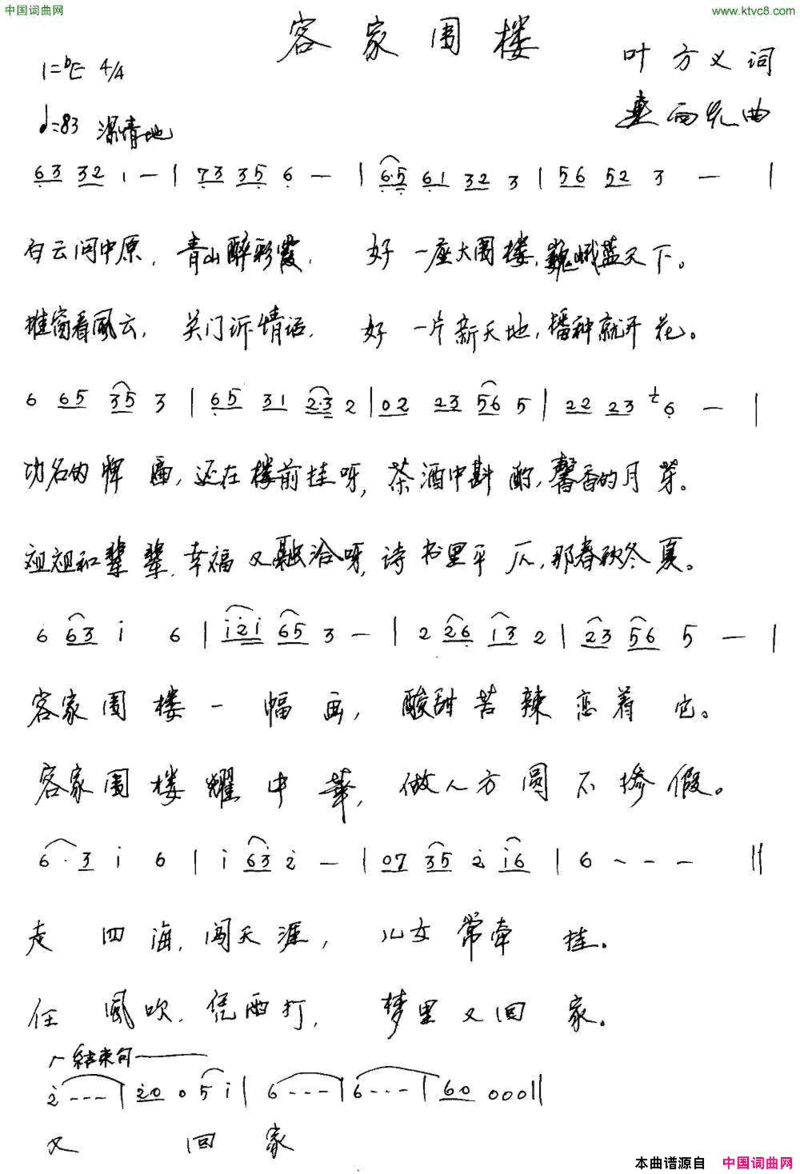 中国词曲网
www.ktvc8.com
客家围楼
1=♭E 4/4
叶方义词
♩=83 深情地
雨先曲
63 32 1 — | 73 35 6 — | 6·5 61 32 3 | 56 52 3 — |
白云问中原，青山醉彩霞， 好一座大围楼，巍峨蓝天下。
推窗看风云，关门诉情话， 好一片新天地，播种就开花。
6 65 35 3 | 65 31 2·3 2 | 02 23 56 5 | 22 23 6 — |
功名的牌匾，还在楼前挂呀，茶酒中斟酌，馨香的月芽。
祖祖和辈辈，幸福又融洽呀，诗书里平仄，那春秋冬夏。
6 63 i 6 | i2i 65 3 — | 2 26 13 2 | 23 56 5 — |
客家围楼一幅画， 酸甜苦辣恋着它。
客家围楼耀中华，做人方圆不掺假。
6·3 i 6 | i 63 2 — | 07 35 2 i6 | 6 - - - ||
走四海，闯天涯， 儿女常牵挂。
任风吹，凭雨打， 梦里又回家。
结束句
2 - - - | 20 0 5 i | 6 - - - | 6 - - - | 60 000 ||
又回家
本曲谱源自 中国词曲网